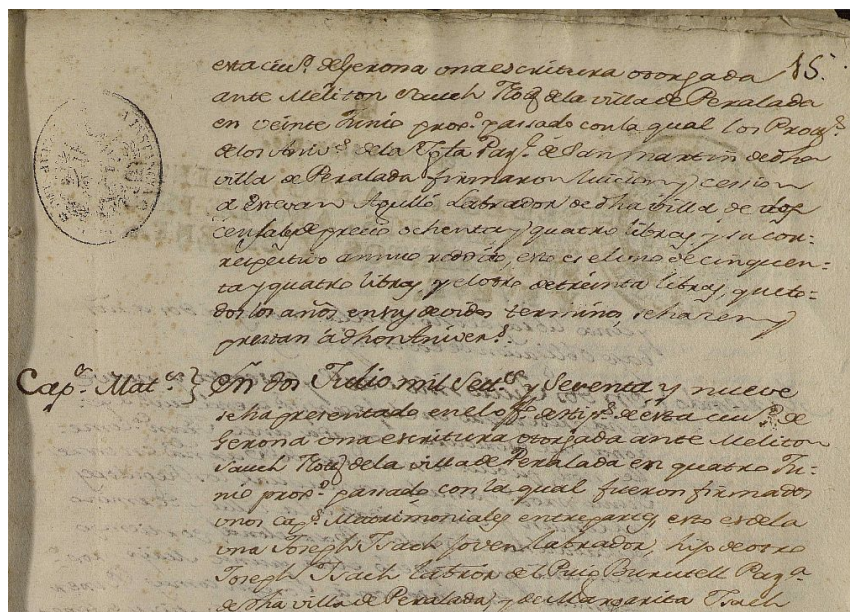 esta ciud. de Gerona una escritura otorgada 15.
ante Meliton Sauch Noto de la villa de Peralada
en veinte Junio prop.o passado con la qual los
de los Anivs. de la Pargl. de San Martin de dha
villa de Peralada firmaron luicion y cession
a Estevan Agulló Labrador de dha villa de dos
censales de precio ochenta y quatro libras, y su cor-
respectivo annuo redditto, esto es el uno de cinquen-
ta y quatro libras, y el otro de treinta libras, que to-
dos los años en sus devidos terminos se hazen y
prestan á dhos Anivers.s
Cap.s Mat.es } En dos Julio mil Sett.s y Setenta y nueve
se ha presentado en el off. de de esta ciud. de
Gerona una escritura otorgada ante Meliton
Sauch Noto de la villa de Peralada en quatro Ju-
nio prop.o passado con la qual fueron firmados
unos cap.s Matrimoniales entre partes, esto es de la
una Joseph Isach joven labrador, hijo de otro
Joseph Isach labror del Puig
de dha villa de Peralada, y de Margarita Isach